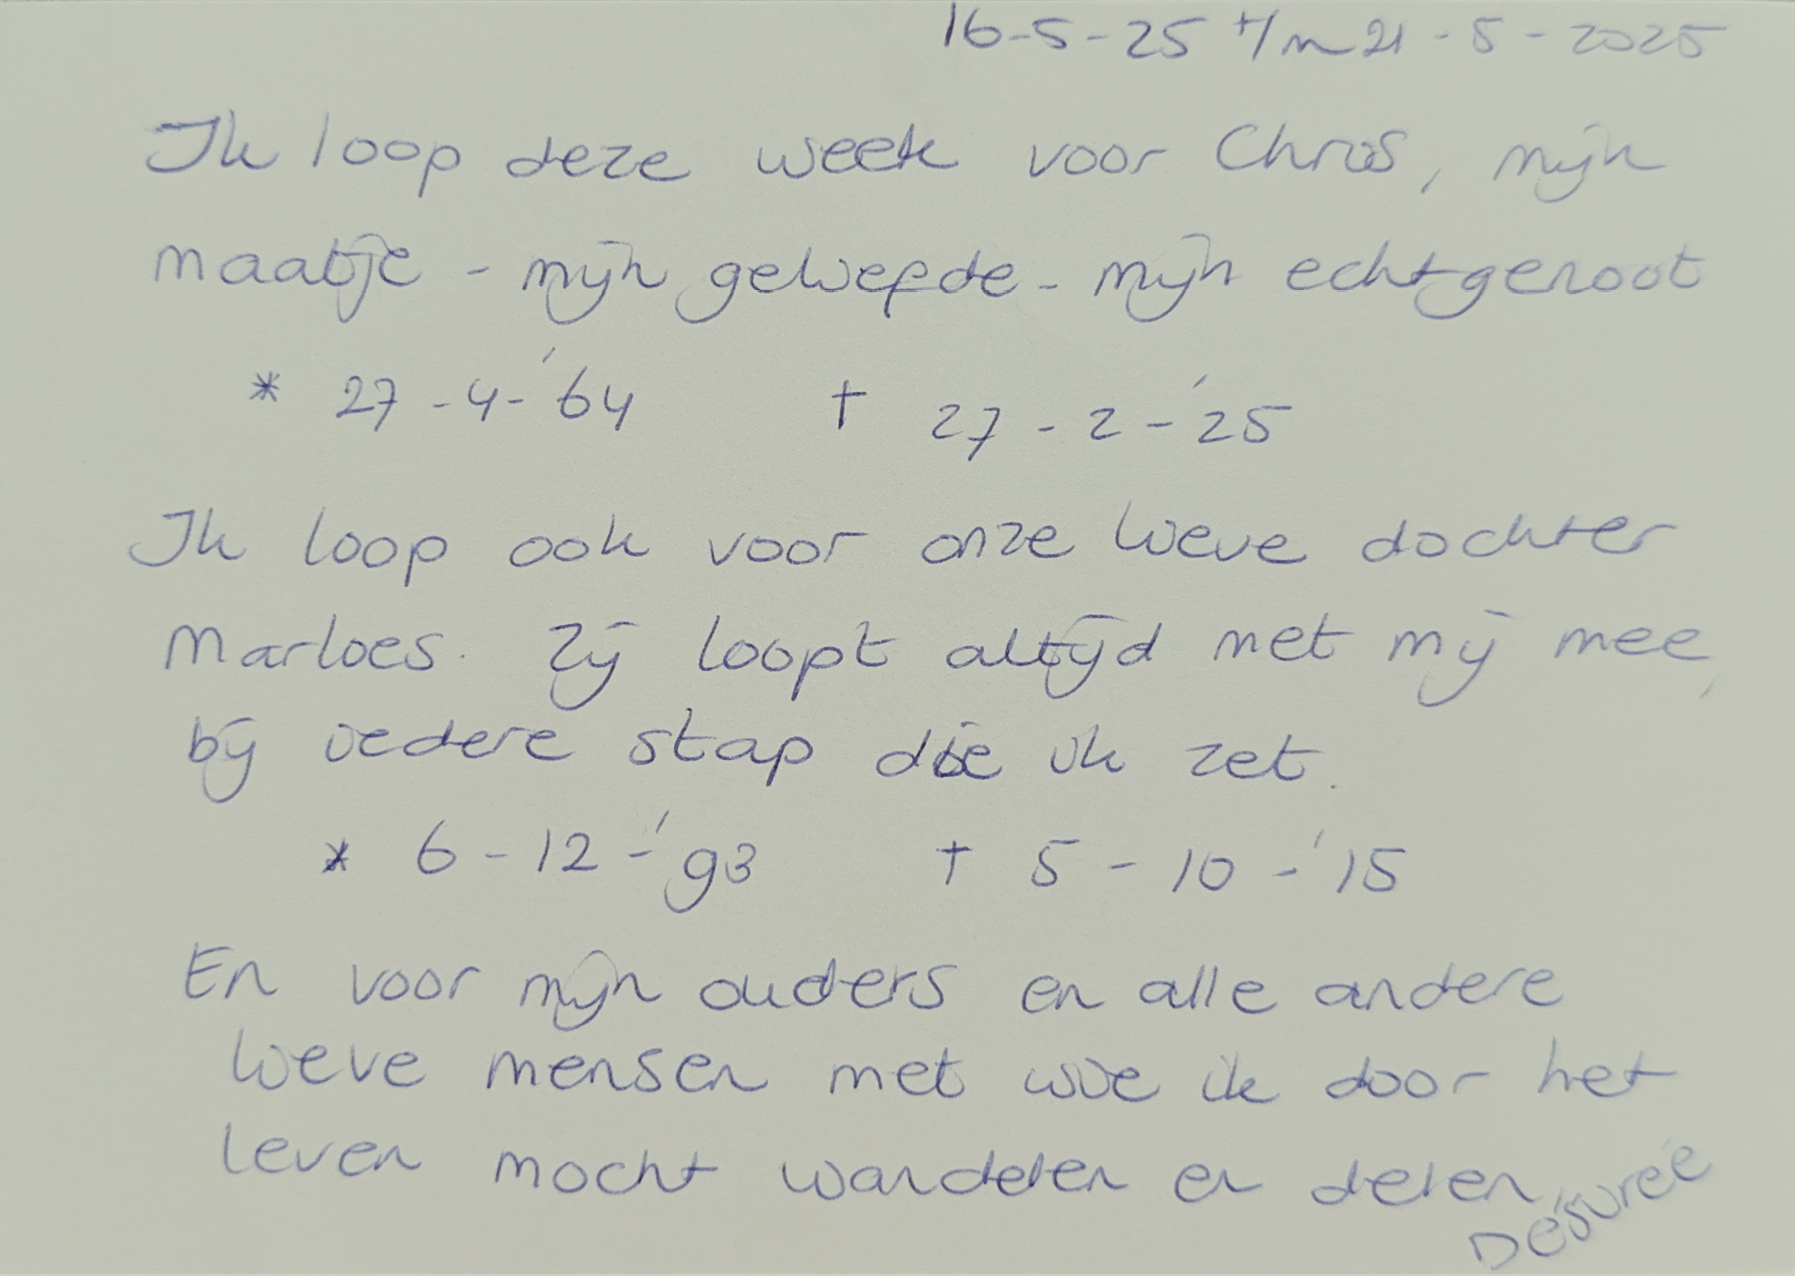 16-5-25 t/m 21-5-2025
Ik loop deze week voor Chris, mijn
maatje - mijn geliefde - mijn echtgenoot
* 27-4-'64 † 27-2-'25
Ik loop ook voor onze lieve dochter
Marloes. Zij loopt altijd met mij mee,
bij iedere stap die ik zet.
* 6-12-'93 † 5-10-'15
En voor mijn ouders en alle andere
lieve mensen met wie ik door het
leven mocht wandelen en delen
Désirée